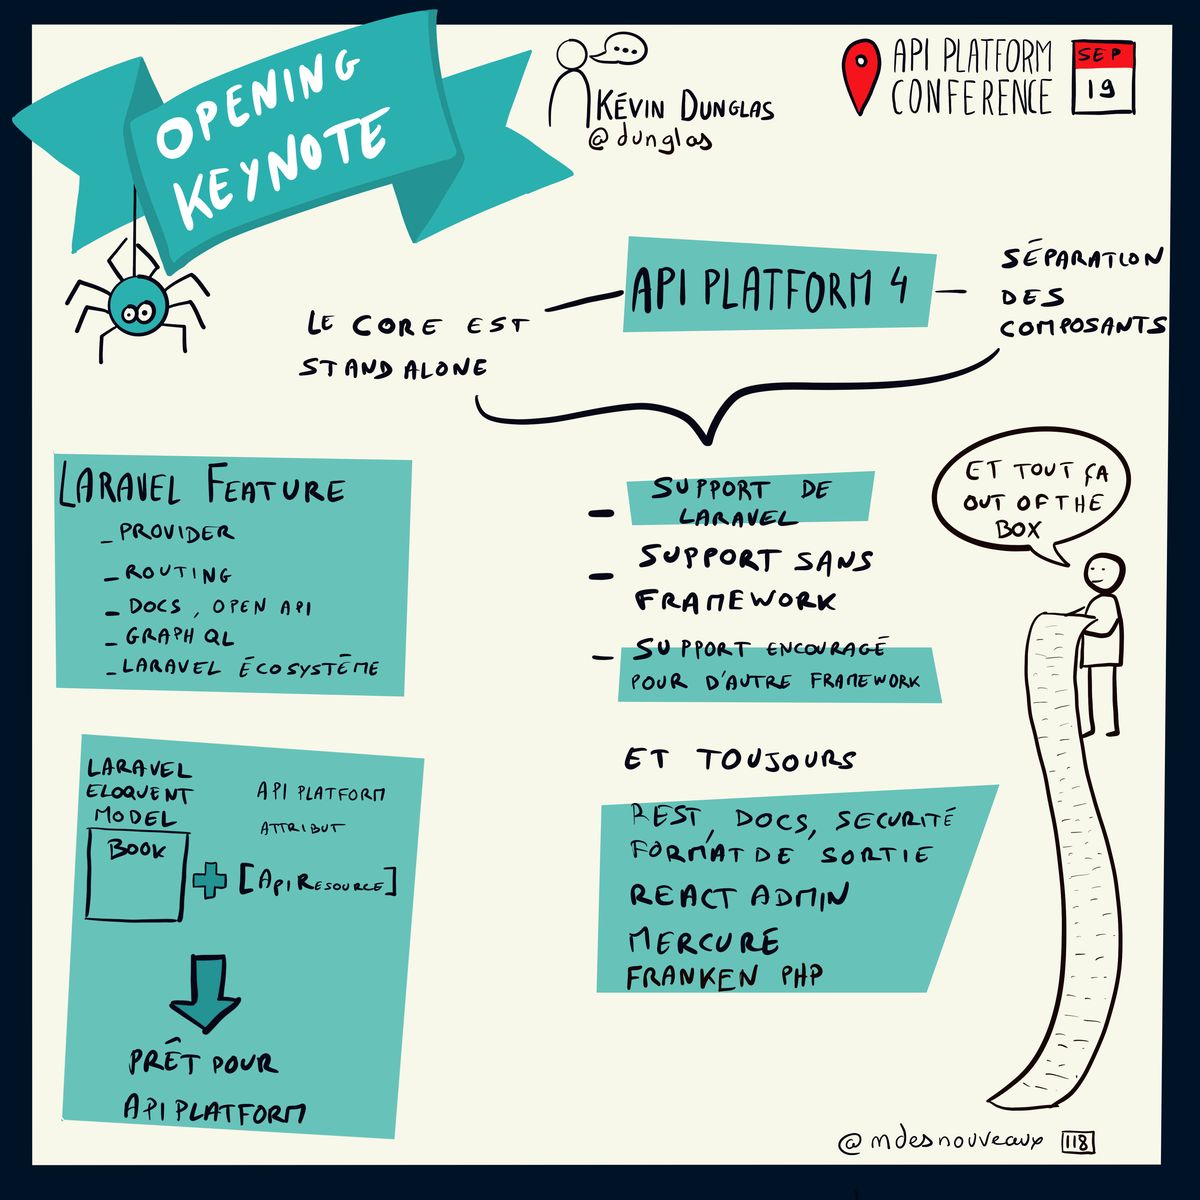 OPENING
KEYNOTE
...
KÉVIN DUNGLAS
@dunglas
API PLATFORM
CONFERENCE
SEP
19
API PLATFORM 4
LE CORE EST
STANDALONE
SÉPARATION
DES
COMPOSANTS
LARAVEL FEATURE
- PROVIDER
- ROUTING
- DOCS, OPEN API
- GRAPH QL
- LARAVEL ÉCOSYSTÊME
- SUPPORT DE
LARAVEL
- SUPPORT SANS
FRAMEWORK
- SUPPORT ENCOURAGÉ
POUR D'AUTRE FRAMEWORK
ET TOUT ÇA
OUT OF THE
BOX
ET TOUJOURS
REST, DOCS, SECURITÉ
FORMAT DE SORTIE
REACT ADMIN
MERCURE
FRANKEN PHP
LARAVEL
ELOQUENT
MODEL
BOOK
API PLATFORM
ATTRIBUT
+
[APIRESOURCE]
PRÊT POUR
API PLATFORM
@mdesnouveaux 118